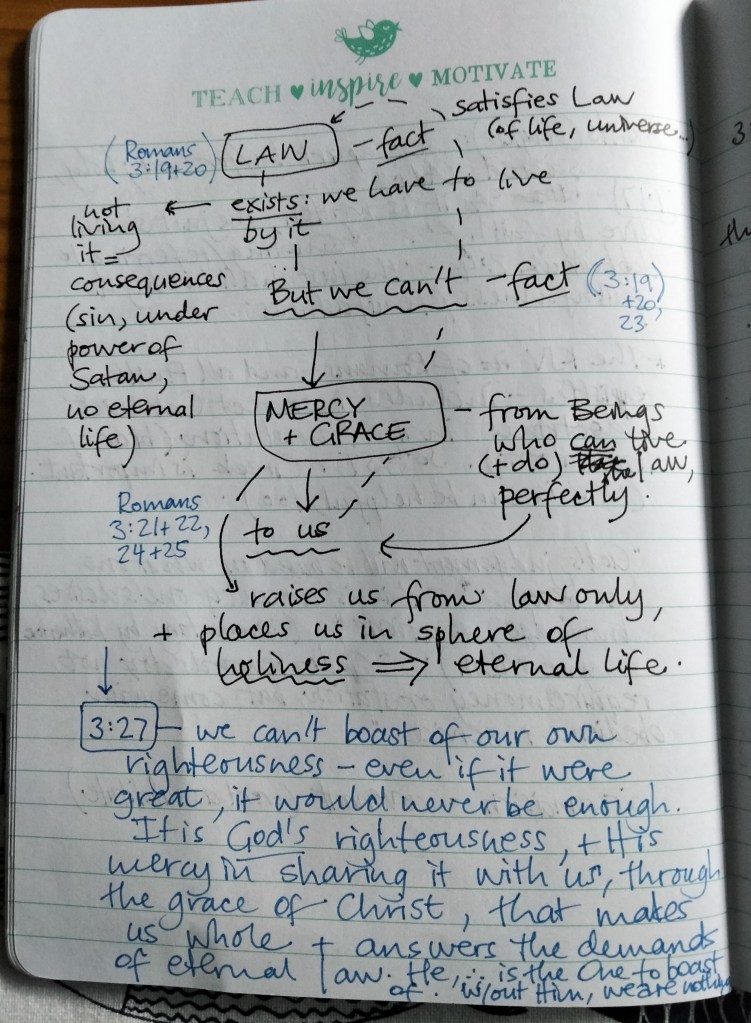 TEACH ♥ inspire ♥ MOTIVATE
satisfies Law
(of life, universe...)
(Romans
3:19+20)
LAW - fact
exists: we have to live
by it
not
living
it =
consequences
(sin, under
power of
Satan,
no eternal
life)
But we can't - fact (3:19
+20,
23)
MERCY
+ GRACE
- from Beings
who can live
(+ do) the law,
perfectly.
Romans
3:21+22,
24+25
to us
raises us from law only,
+ places us in sphere of
holiness ⇒ eternal life.
3:27 - we can't boast of our own
righteousness - even if it were
great, it would never be enough.
It is God's righteousness, + His
mercy in sharing it with us, through
the grace of Christ, that makes
us whole + answers the demands
of eternal law. He, ∴ is the One to boast
of. w/out Him, we are nothing
3
th